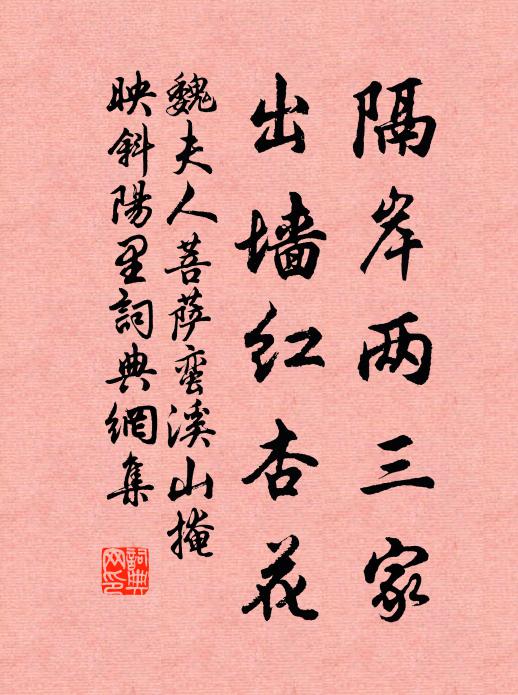 隔岸两三家
出墙红杏花
魏夫人菩萨蛮溪山掩
映斜陽里詞典網集
詞典
网印